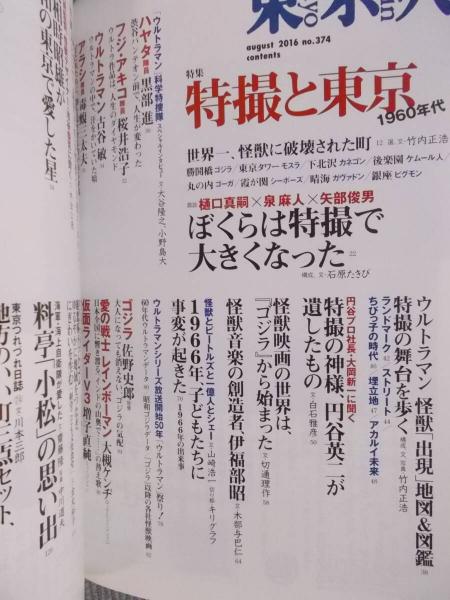 東京人
august 2016 no.374
contents
特集
特撮と東京
1960年代
世界一、怪獣に破壊された町 12 選、文・竹内正浩
勝鬨橋ゴジラ／東京タワーモスラ／下北沢カネゴン／後楽園ケムール人／
丸の内ゴーガ／霞が関シーボーズ／晴海ガヴァドン／銀座ピグモン
鼎談 樋口真嗣×泉麻人×矢部俊男
ぼくらは特撮で
大きくなった 22
構成、文・石原たきび
「ウルトラマン」科学特捜隊 スペシャルインタビュー 文・大谷隆之、小野島大
ハヤタ隊員 黒部進
渋谷パンテオン前で、人生が変わった
フジ・アキコ隊員 桜井浩子
ウルトラ作品は一生のダイヤモンド
ウルトラマン 古谷敏
ウルトラマンの中で、汗をかいていた頃
アラシ隊員 毒蝮三太夫
の東京で愛した星
ウルトラマン 怪獣「出現」地図&図鑑 38
特撮の舞台を歩く 構成、文、写真・竹内正浩
ランドマーク 42 ストリート 44
ちびっ子の時代 46 埋立地 47 アカルイ未来 48
円谷プロ社長・大岡新一に聞く
特撮の神様、円谷英二が
遺したもの 文・白石雅彦 50
怪獣映画の世界は、
『ゴジラ』から始まった 文・切通理作 58
怪獣音楽の創造者、伊福部昭 文・木部与巴仁 64
怪獣とビートルズと一億人とシェー 文・山崎浩一 切り絵・キリグラフ
1966年、子どもたちに
事変が起きた 70 1966年の出来事
ウルトラマンシリーズ放送開始50年 「ウルトラマン」祭り! 78
60年代ウルトラデータ 80 昭和ゴジラデータ 「ゴジラ」以降の各社怪獣映画 92
ゴジラ 佐野史郎
大人になっても消えない、ゴジラの気配
愛の戦士レインボーマン 大槻ケンヂ
仮面ライダーV3 増子直純
海軍・海上自衛隊が愛した
料亭「小松」の思い出 120
東京つれづれ日誌 文・川本三郎
地方の、いい町三点セット、